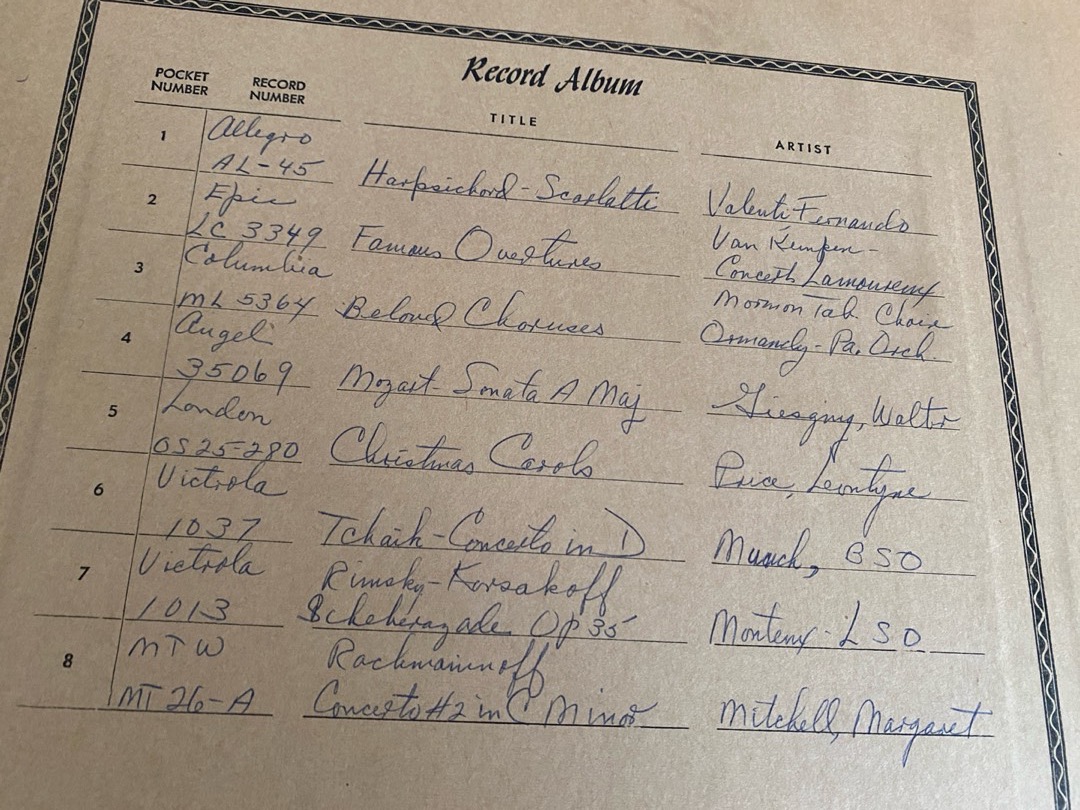 Record Album
POCKET NUMBER RECORD NUMBER TITLE ARTIST
1 Allegro
AL-45 Harpsichord - Scarlatti Valenti Fernando
2 Epic Van Kempen-
LC 3349 Famous Overtures Concerts Lamoureux
3 Columbia Mormon Tab. Choir
ML 5364 Beloved Choruses Ormandy - Pa. Orch.
4 Angel
35069 Mozart - Sonata A Maj Giesging, Walter
5 London
OS 25-280 Christmas Carols Price, Leontyne
6 Victrola
1037 Tchaik - Concerto in D Munch, BSO
7 Victrola Rimsky-Korsakoff
1013 Scheherazade Op 35 Monteux - LSO
8 MTW Rachmaninnoff
MT 26-A Concerto #2 in C Minor Mitchell, Margaret